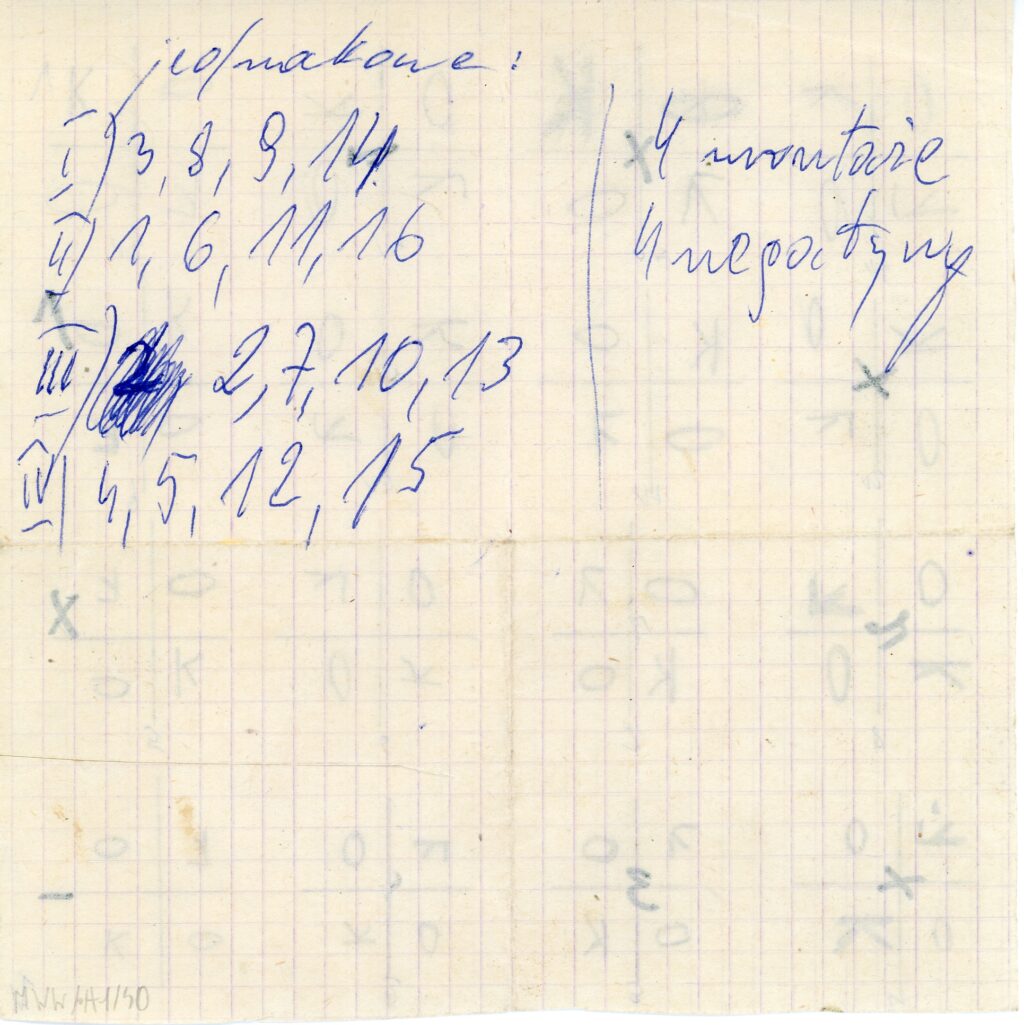 jednakowe:
I) 3, 8, 9, 14
II) 1, 6, 11, 16
III) 2, 7, 10, 13
IV) 4, 5, 12, 15
4 montaże
4 negatywy